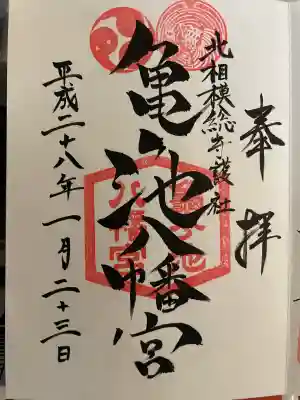 奉拝
北相模総守護社
亀ヶ池八幡宮
平成二十八年一月二十三日